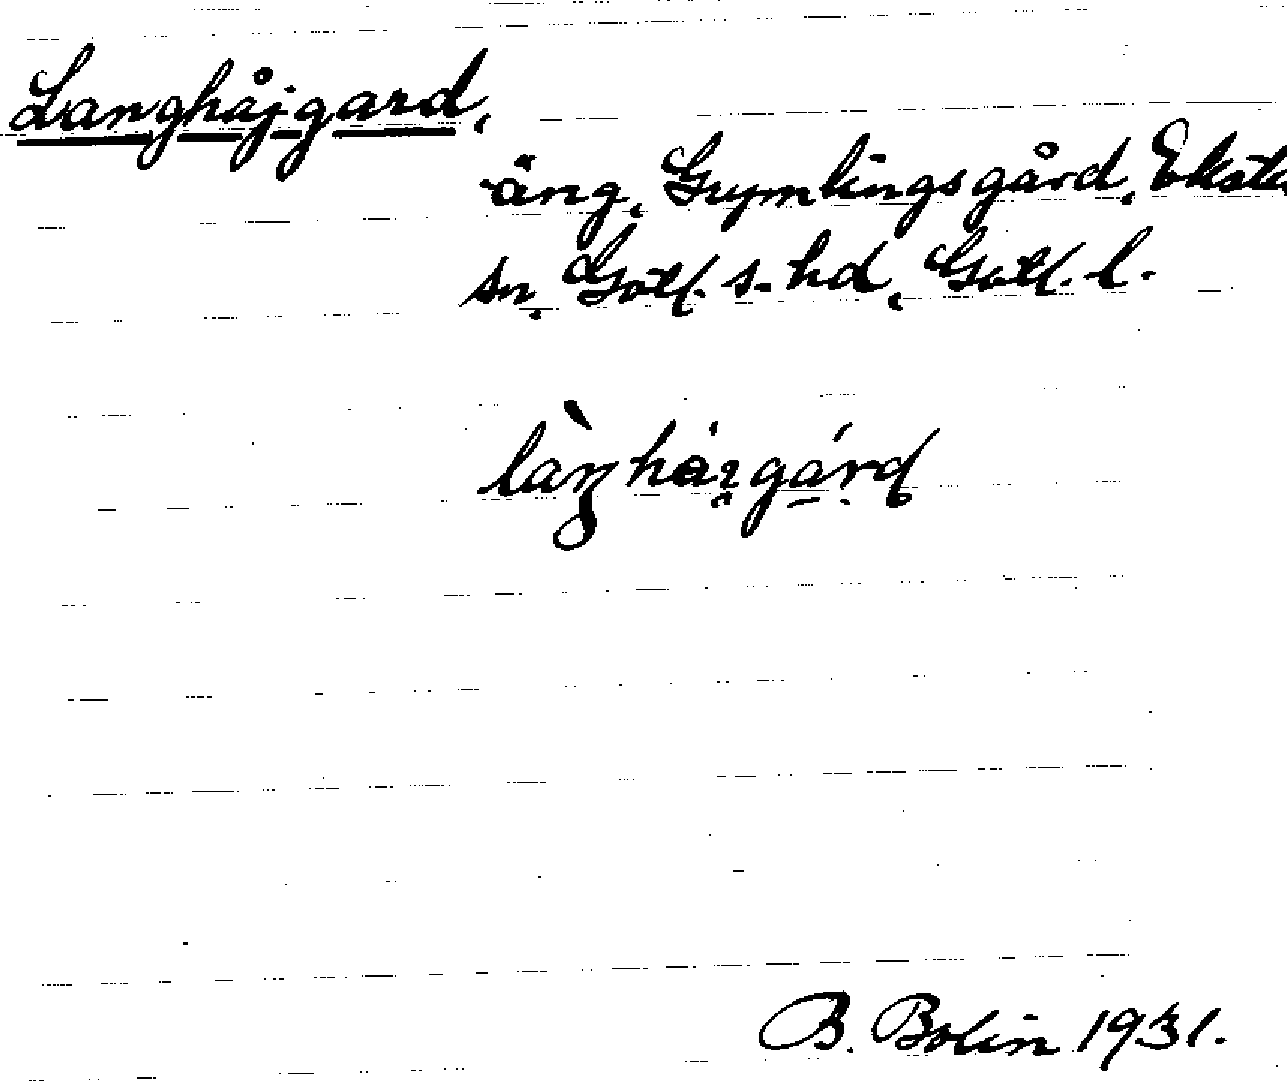 Langhåjgard,
äng, Grymlingsgård, Eksta
sn, Gotl. s. hd, Gotl. l.
B. Bolin 1931.